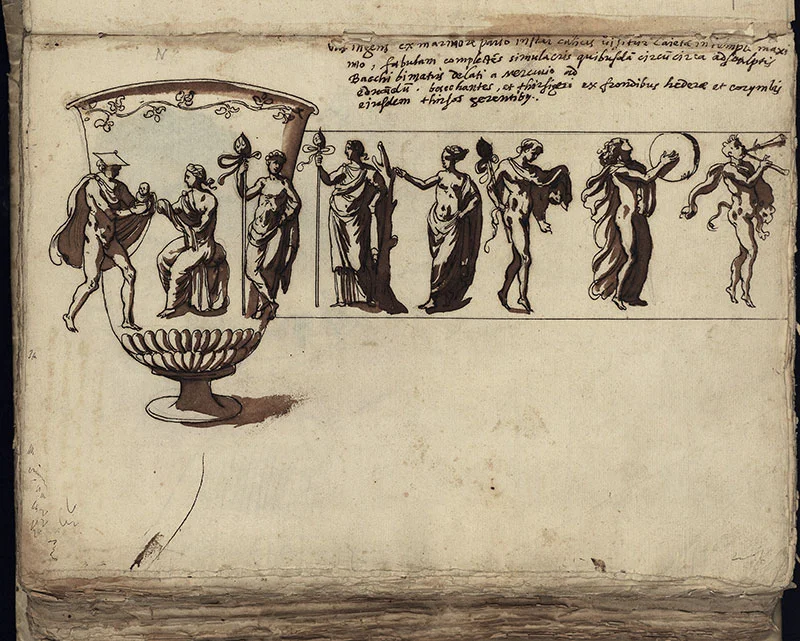 Vas ingens ex marmore pario instar calicis uisitur Caietæ in templo maxi
mo, fabulam complectens simulacris quibusdā circū circa adsculptis
Bacchi bimatris delati a Mercurio ad
educādū. bacchantes, et thirsigeri ex frondibus hederæ et corymbis
eiusdem thirsos gerentibꝰ.
N